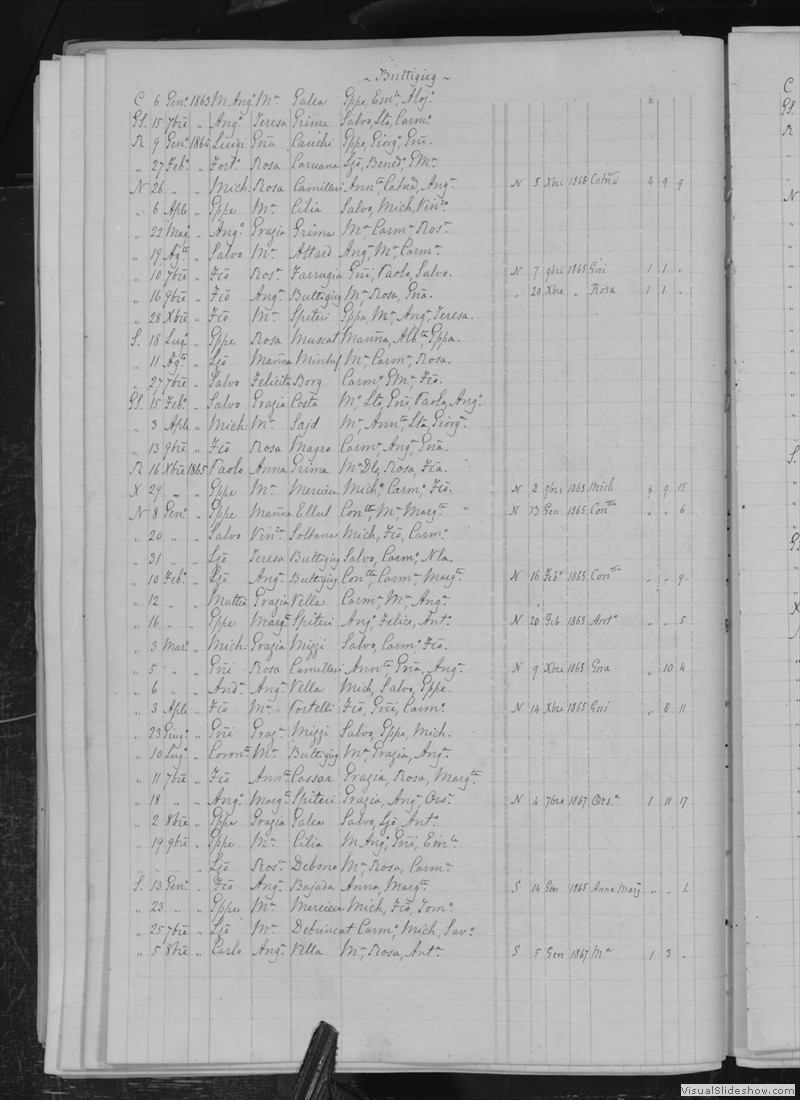 ~ Buttigieg ~
C 6 Genº 1863 M Angª Mª Galea Gppe, Emla, Alojº
GS. 15 7bre " Angº Teresa Grima Salvo, Lta, Carmª
R 9 Genº 1864 Luigi Gña Cauchi Gppe, Giorgº, Gñi.
" 27 Febº " Fortº Rosa Caruana Ljō, Bened, GMª
N 26 " " Mich: Rosa Camilleri Annta, Catna, Angª N 5 Xbre 1868 Catna 4 9 9
" 6 Aple " Gppe Mª Cilia Salvo, Mich, Vinzº
" 22 Magº " Angº Grazia Grima Mª Carmª Rosª
" 19 Agto " Salvo Mª Attard Angª, Mª, Carmª
" 10 7bre " Fcō Rosª Farrugia Gñi, Paolo, Salvo. N 7 9bre 1865 Gñi 1 1 "
" 16 9bre " Fcō Angª Buttigieg Mª, Rosa, Gña. " 20 Xbre " Rosa 1 1 "
" 28 Xbre " Fcō Mª Spiteri Gppa, Mª, Angª, Teresa.
S. 18 Lugº " Gppe Rosa Muscat Mañna, Albta, Gppa.
" 11 Agto " Ljō Mañna Mintuf Mª, Carmª, Rosa.
" 27 7bre " Salvo Felicita Borg Carmº, GMª, Fcō.
GS. 15 Febº " Salvo Grazia Costa Mª, Lta, Gñi, Paolo, Angº
" 3 Aple " Mich: Mª Sajd Mª, Annta, Lta, Giorgª
" 13 9bre " Fcō Rosa Magro Carmª, Angª, Gña.
R 16 Xbre 1865 Paolo Anna Grima Mª Dlg, Rosa, Fca.
X 29 " " Gppe Mª Mercieca Michº, Carmº, Fcō. N 3 9bre 1865 Mich 8 9 15
N 8 Genº " Gppe Mañna Ellul Contta, Mª, Margta " N 13 Gen 1865 Contta " " 6
" 20 " " Salvo Vinza Soltana Mich, Fcō, Carmº
" 31 " " Ljō Teresa Buttigieg Salvo, Carmº, Nla.
" 10 Febº " Ljō Angª Buttigieg Contta, Carmª, Margta N 16 Febº 1865 Contta " " 9
" 12 " " Mattia Grazia Vella Carmª, Mª, Angª
" 16 " " Gppe Margta Spiteri Angº, Felice, Antº N 20 Feb 1865 Antº " " 5
" 3 Marº " Mich: Grazia Mizzi Salvo, Carmº, Fcō.
" 5 " " Gñi Rosa Camilleri Annta, Gña, Angª N 9 Xbre 1865 Gna " 10 4
" 6 " " Andª Angª Vella Mich, Salvo, Gppe.
" 3 Aple " Fcō Mª Portelli Fcō, Gñi, Carmº N 14 Xbre 1865 Gñi " 8 11
" 23 Giugº " Gñi Grazª Mizzi Salvo, Gppe, Mich.
" 10 Lugº " Coronto Mª Buttigieg Mª, Grazia, Angª
" 11 7bre " Fcō Annta Cassar Grazia, Rosa, Margta
" 18 " " Angº Margta Spiteri Grazia, Angª, Orsª N 4 7bre 1867 Orsª 1 11 17
" 2 8bre " Gppe Grazia Galea Salvo, Ljō, Antº
" 19 9bre " Gppe Mª Cilia M Angº, Gñi, Emla
" " " Ljō Rosª Debono Mª, Rosa, Carmª
S. 13 Genº " Fcō Angª Bajada Anna, Margta S 14 Gen 1865 Anna Marg " " 1
" 23 " " Gppe Mª Mercieca Mich, Fcō, Tomº
" 25 7bre " Ljō Mª Debrincat Carmº, Mich, Savº
" 5 8bre " Carlo Angª Vella Mª, Rosa, Antª S 5 Gen 1867 Mª 1 3 "
VisualSlideshow.com